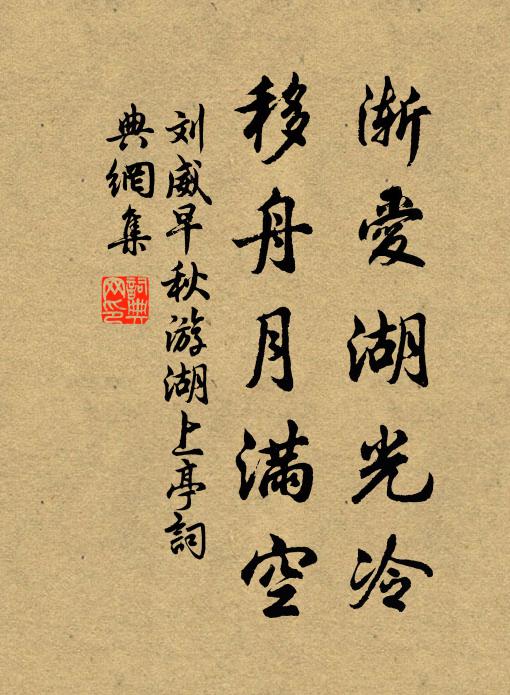 渐爱湖光冷
移舟月满空
刘威早秋游湖上亭詞
典網集
詞典
网印